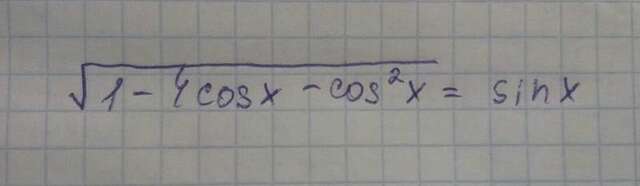 √(1 - 4cosx - cos²x) = sinx